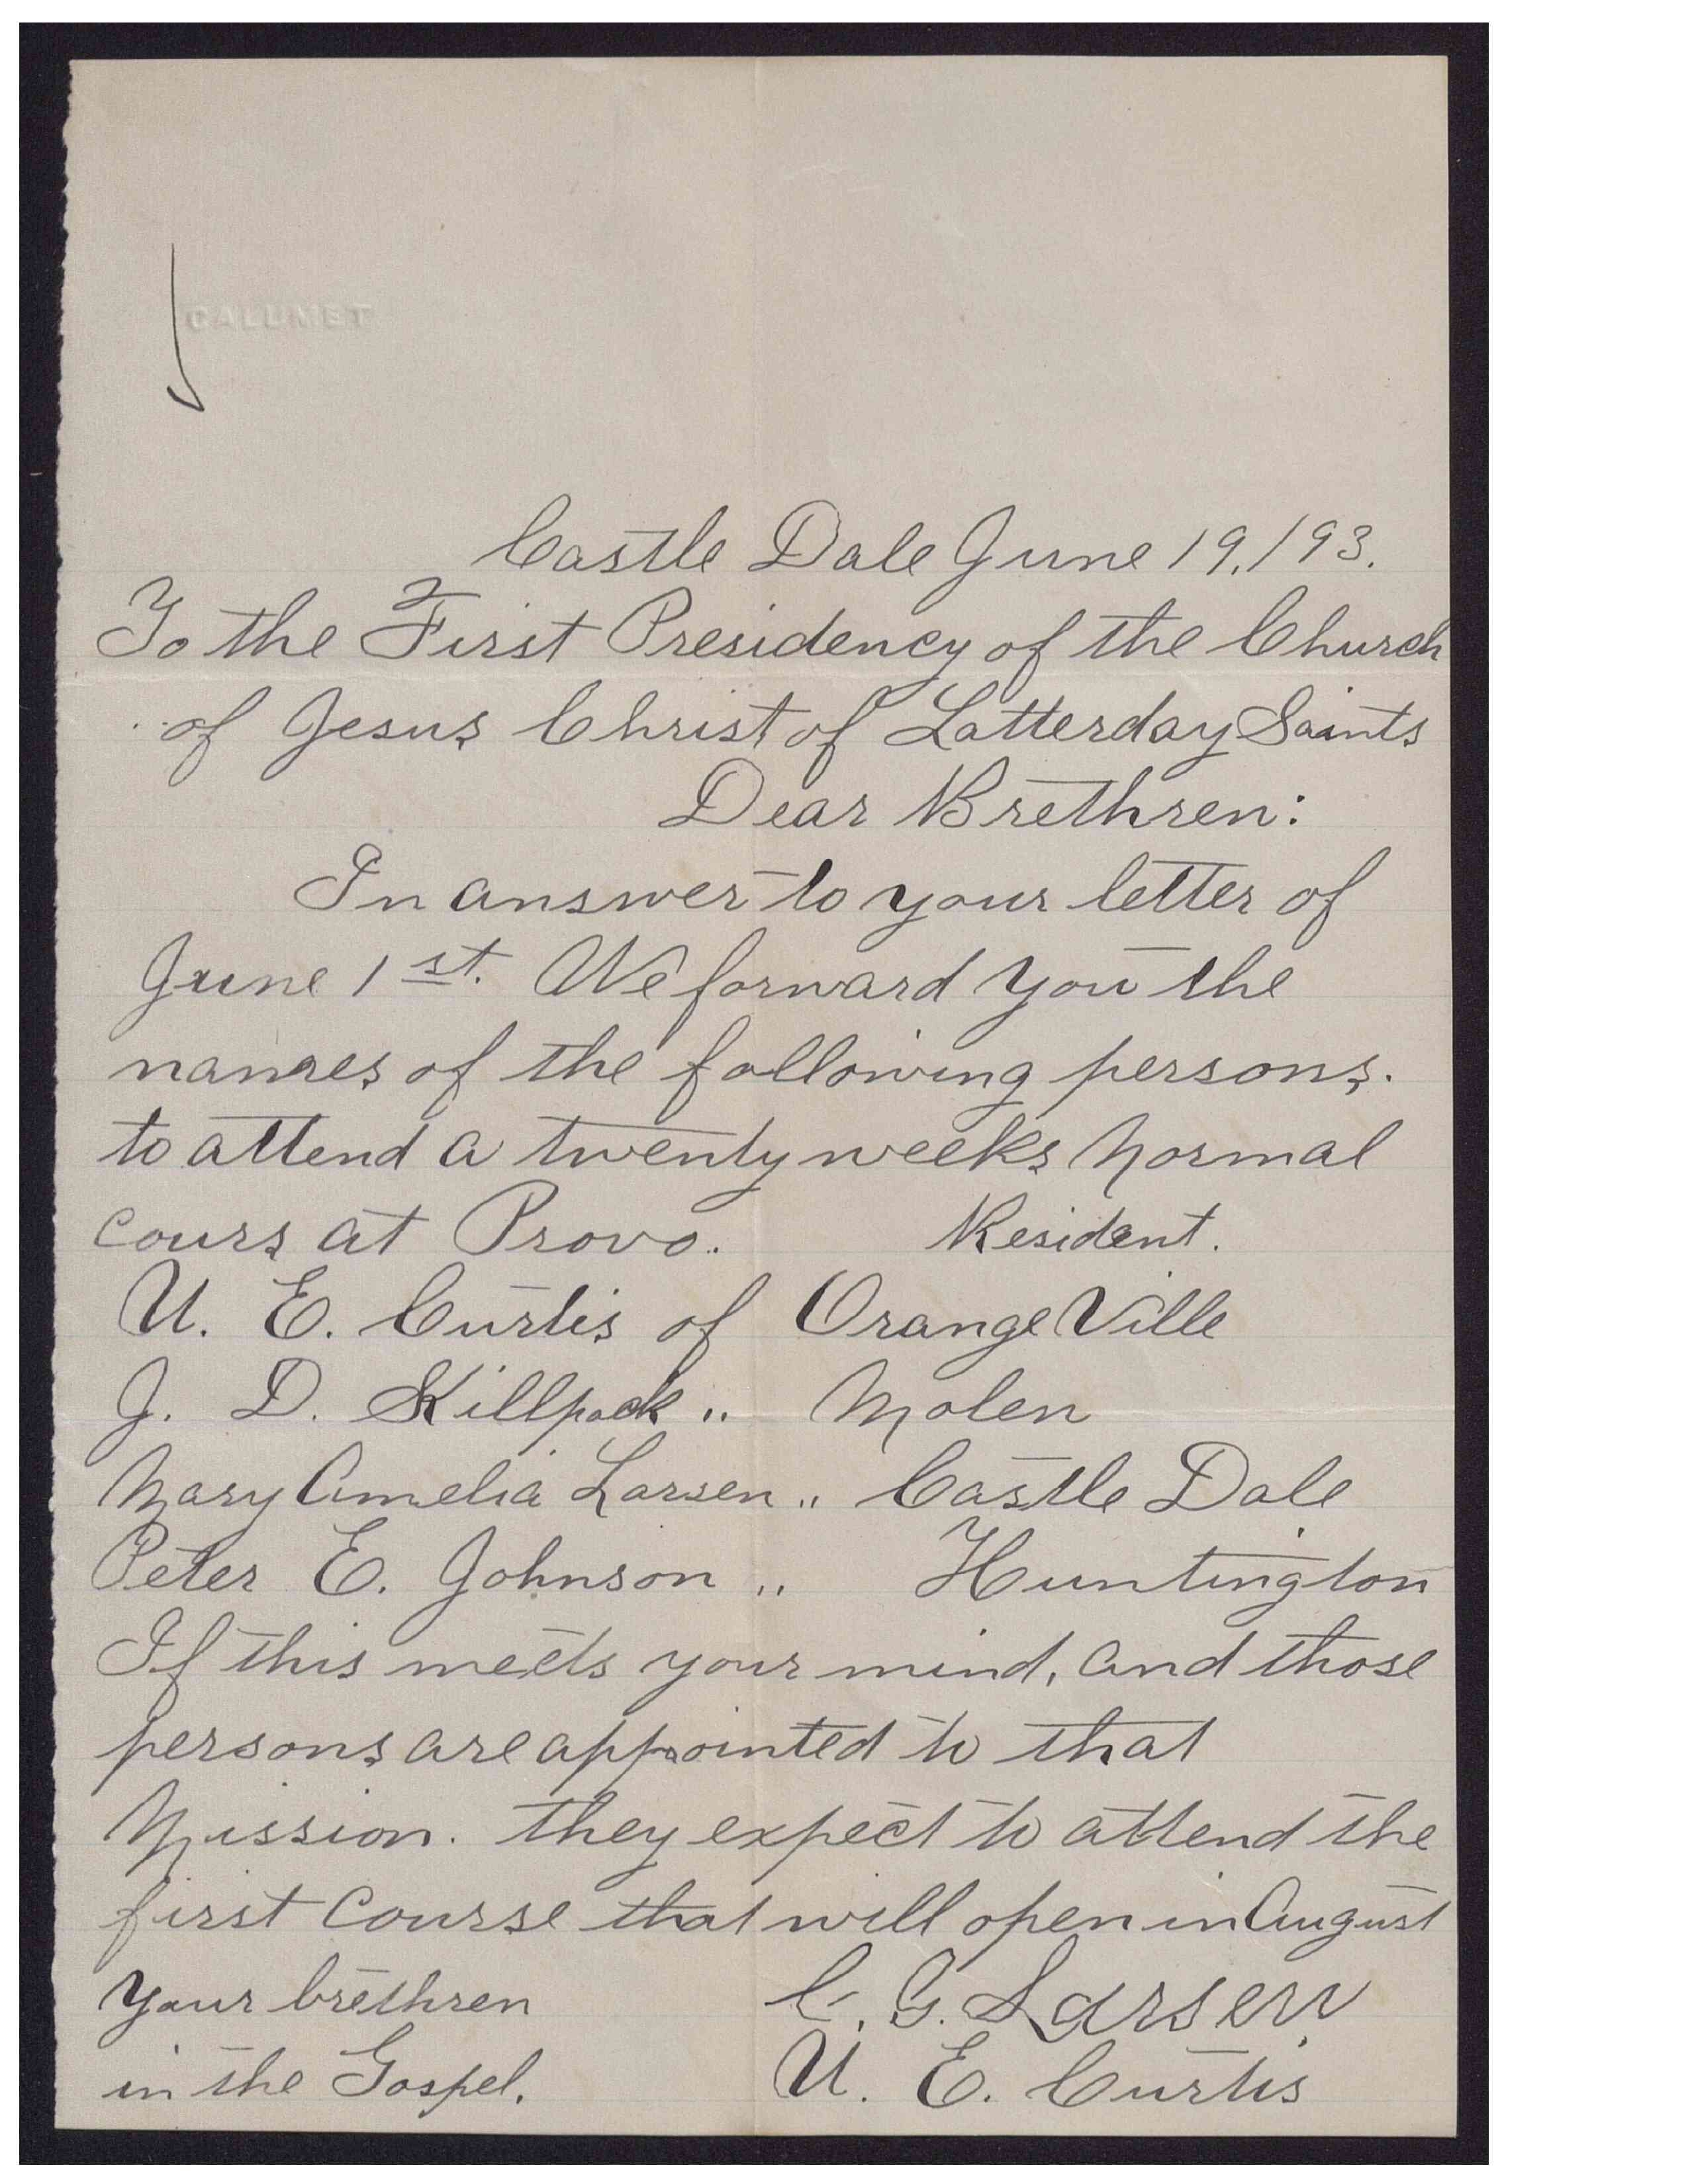 CALUMET
Castle Dale June 19,/93.
To the First Presidency of the Church
of Jesus Christ of Latterday Saints
Dear Brethren:
In answer to your letter of
June 1st. We forward you the
names of the following persons.
to attend a twenty weeks Normal
cours at Provo. Resident.
U. E. Curtis of Orange Ville
J. D. Killpack " Molen
Mary Amelia Larsen " Castle Dale
Peter E. Johnson " Huntington
If this meets your mind, and those
persons are appointed to that
Mission. they expect to attend the
first course that will open in August
your brethren C. G. Larsen
in the Gospel. U. E. Curtis